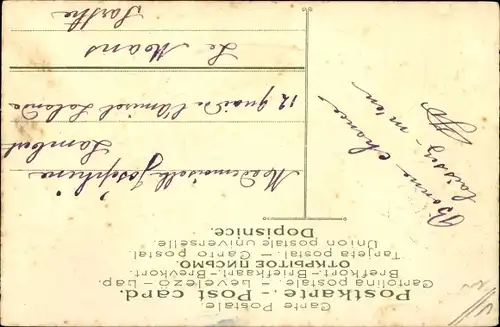 Carte Postale.
Postkarte.- Post card.
Cartolina postale. - Levelező-Lap.
Brefkort.-Briefkaart.-Brevkort.
ОТКРЫТОЕ ПИСЬМО.
Tarjeta postal. - Carto postal
Union postale universelle.
Dopisnice.
Bonne chance
Mademoiselle Joséphine
Lambert
12 quai de l'Amiral Lalande
Le Mans
Sarthe